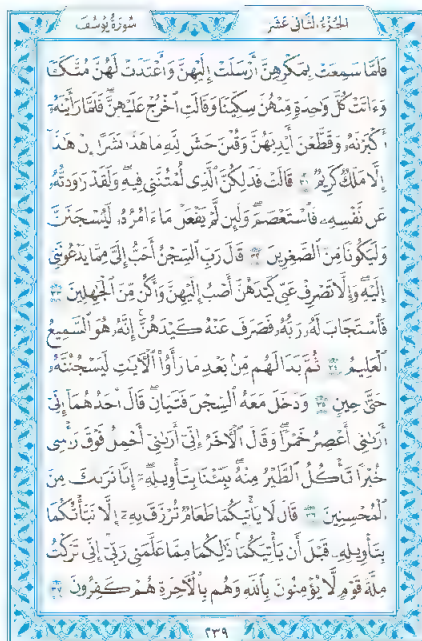 الجُزْءُ الثَّانِي عَشَرَ
سُورَةُ يُوسُفَ
فَلَمَّا سَمِعَتْ بِمَكْرِهِنَّ أَرْسَلَتْ إِلَيْهِنَّ وَأَعْتَدَتْ لَهُنَّ مُتَّكَـًٔا
وَءَاتَتْ كُلَّ وَٰحِدَةٍ مِّنْهُنَّ سِكِّينًا وَقَالَتِ ٱخْرُجْ عَلَيْهِنَّ فَلَمَّا رَأَيْنَهُۥٓ
أَكْبَرْنَهُۥ وَقَطَّعْنَ أَيْدِيَهُنَّ وَقُلْنَ حَٰشَ لِلَّهِ مَا هَٰذَا بَشَرًا إِنْ هَٰذَآ
إِلَّا مَلَكٌ كَرِيمٌ ٣١ قَالَتْ فَذَٰلِكُنَّ ٱلَّذِى لُمْتُنَّنِى فِيهِ وَلَقَدْ رَٰوَدتُّهُۥ
عَن نَّفْسِهِۦ فَٱسْتَعْصَمَ وَلَئِن لَّمْ يَفْعَلْ مَآ ءَامُرُهُۥ لَيُسْجَنَنَّ
وَلَيَكُونًا مِّنَ ٱلصَّٰغِرِينَ ٣٢ قَالَ رَبِّ ٱلسِّجْنُ أَحَبُّ إِلَىَّ مِمَّا يَدْعُونَنِىٓ
إِلَيْهِ وَإِلَّا تَصْرِفْ عَنِّى كَيْدَهُنَّ أَصْبُ إِلَيْهِنَّ وَأَكُن مِّنَ ٱلْجَٰهِلِينَ ٣٣
فَٱسْتَجَابَ لَهُۥ رَبُّهُۥ فَصَرَفَ عَنْهُ كَيْدَهُنَّ إِنَّهُۥ هُوَ ٱلسَّمِيعُ
ٱلْعَلِيمُ ٣٤ ثُمَّ بَدَا لَهُم مِّنۢ بَعْدِ مَا رَأَوُا۟ ٱلْـَٔايَٰتِ لَيَسْجُنُنَّهُۥ
حَتَّىٰ حِينٍ ٣٥ وَدَخَلَ مَعَهُ ٱلسِّجْنَ فَتَيَانِ قَالَ أَحَدُهُمَآ إِنِّىٓ
أَرَىٰنِىٓ أَعْصِرُ خَمْرًا وَقَالَ ٱلْـَٔاخَرُ إِنِّىٓ أَرَىٰنِىٓ أَحْمِلُ فَوْقَ رَأْسِى
خُبْزًا تَأْكُلُ ٱلطَّيْرُ مِنْهُ نَبِّئْنَا بِتَأْوِيلِهِۦٓ إِنَّا نَرَىٰكَ مِنَ
ٱلْمُحْسِنِينَ ٣٦ قَالَ لَا يَأْتِيكُمَا طَعَامٌ تُرْزَقَانِهِۦٓ إِلَّا نَبَّأْتُكُمَا
بِتَأْوِيلِهِۦ قَبْلَ أَن يَأْتِيَكُمَا ذَٰلِكُمَا مِمَّا عَلَّمَنِى رَبِّىٓ إِنِّى تَرَكْتُ
مِلَّةَ قَوْمٍ لَّا يُؤْمِنُونَ بِٱللَّهِ وَهُم بِٱلْـَٔاخِرَةِ هُمْ كَٰفِرُونَ ٣٧
٢٣٩